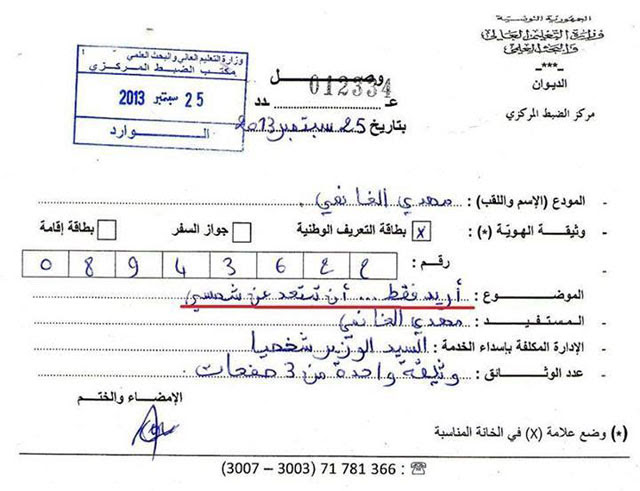 الجمهورية التونسية
وزارة التعليم العالي
والبحث العلمي
-***-
الديوان
مركز الضبط المركزي
وزارة التعليم العالي والبحث العلمي
مكتب الضبط المركزي
25 سبتمبر 2013
الـــوارد
وصـــل
عـدد 012334
بتاريخ 25 سبتمبر 2013
- المودع (الإسم واللقب) : مهدي الغانمي .
- وثيقة الهوية (*) : [x] بطاقة التعريف الوطنية جواز السفر بطاقة إقامة
رقم : 0 8 9 4 3 6
- الموضوع : أريد فقط ... أن تبتعد عن شمسي
- المستفيد : مهدي الغانمي
- الإدارة المكلفة بإسداء الخدمة : السيد الوزير شخصيا
- عدد الوثائق : وثيقة واحدة من 3 صفحات
الإمضاء والختم
(*) وضع علامة (X) في الخانة المناسبة
☎ : 71 781 366 (3003 – 3007)